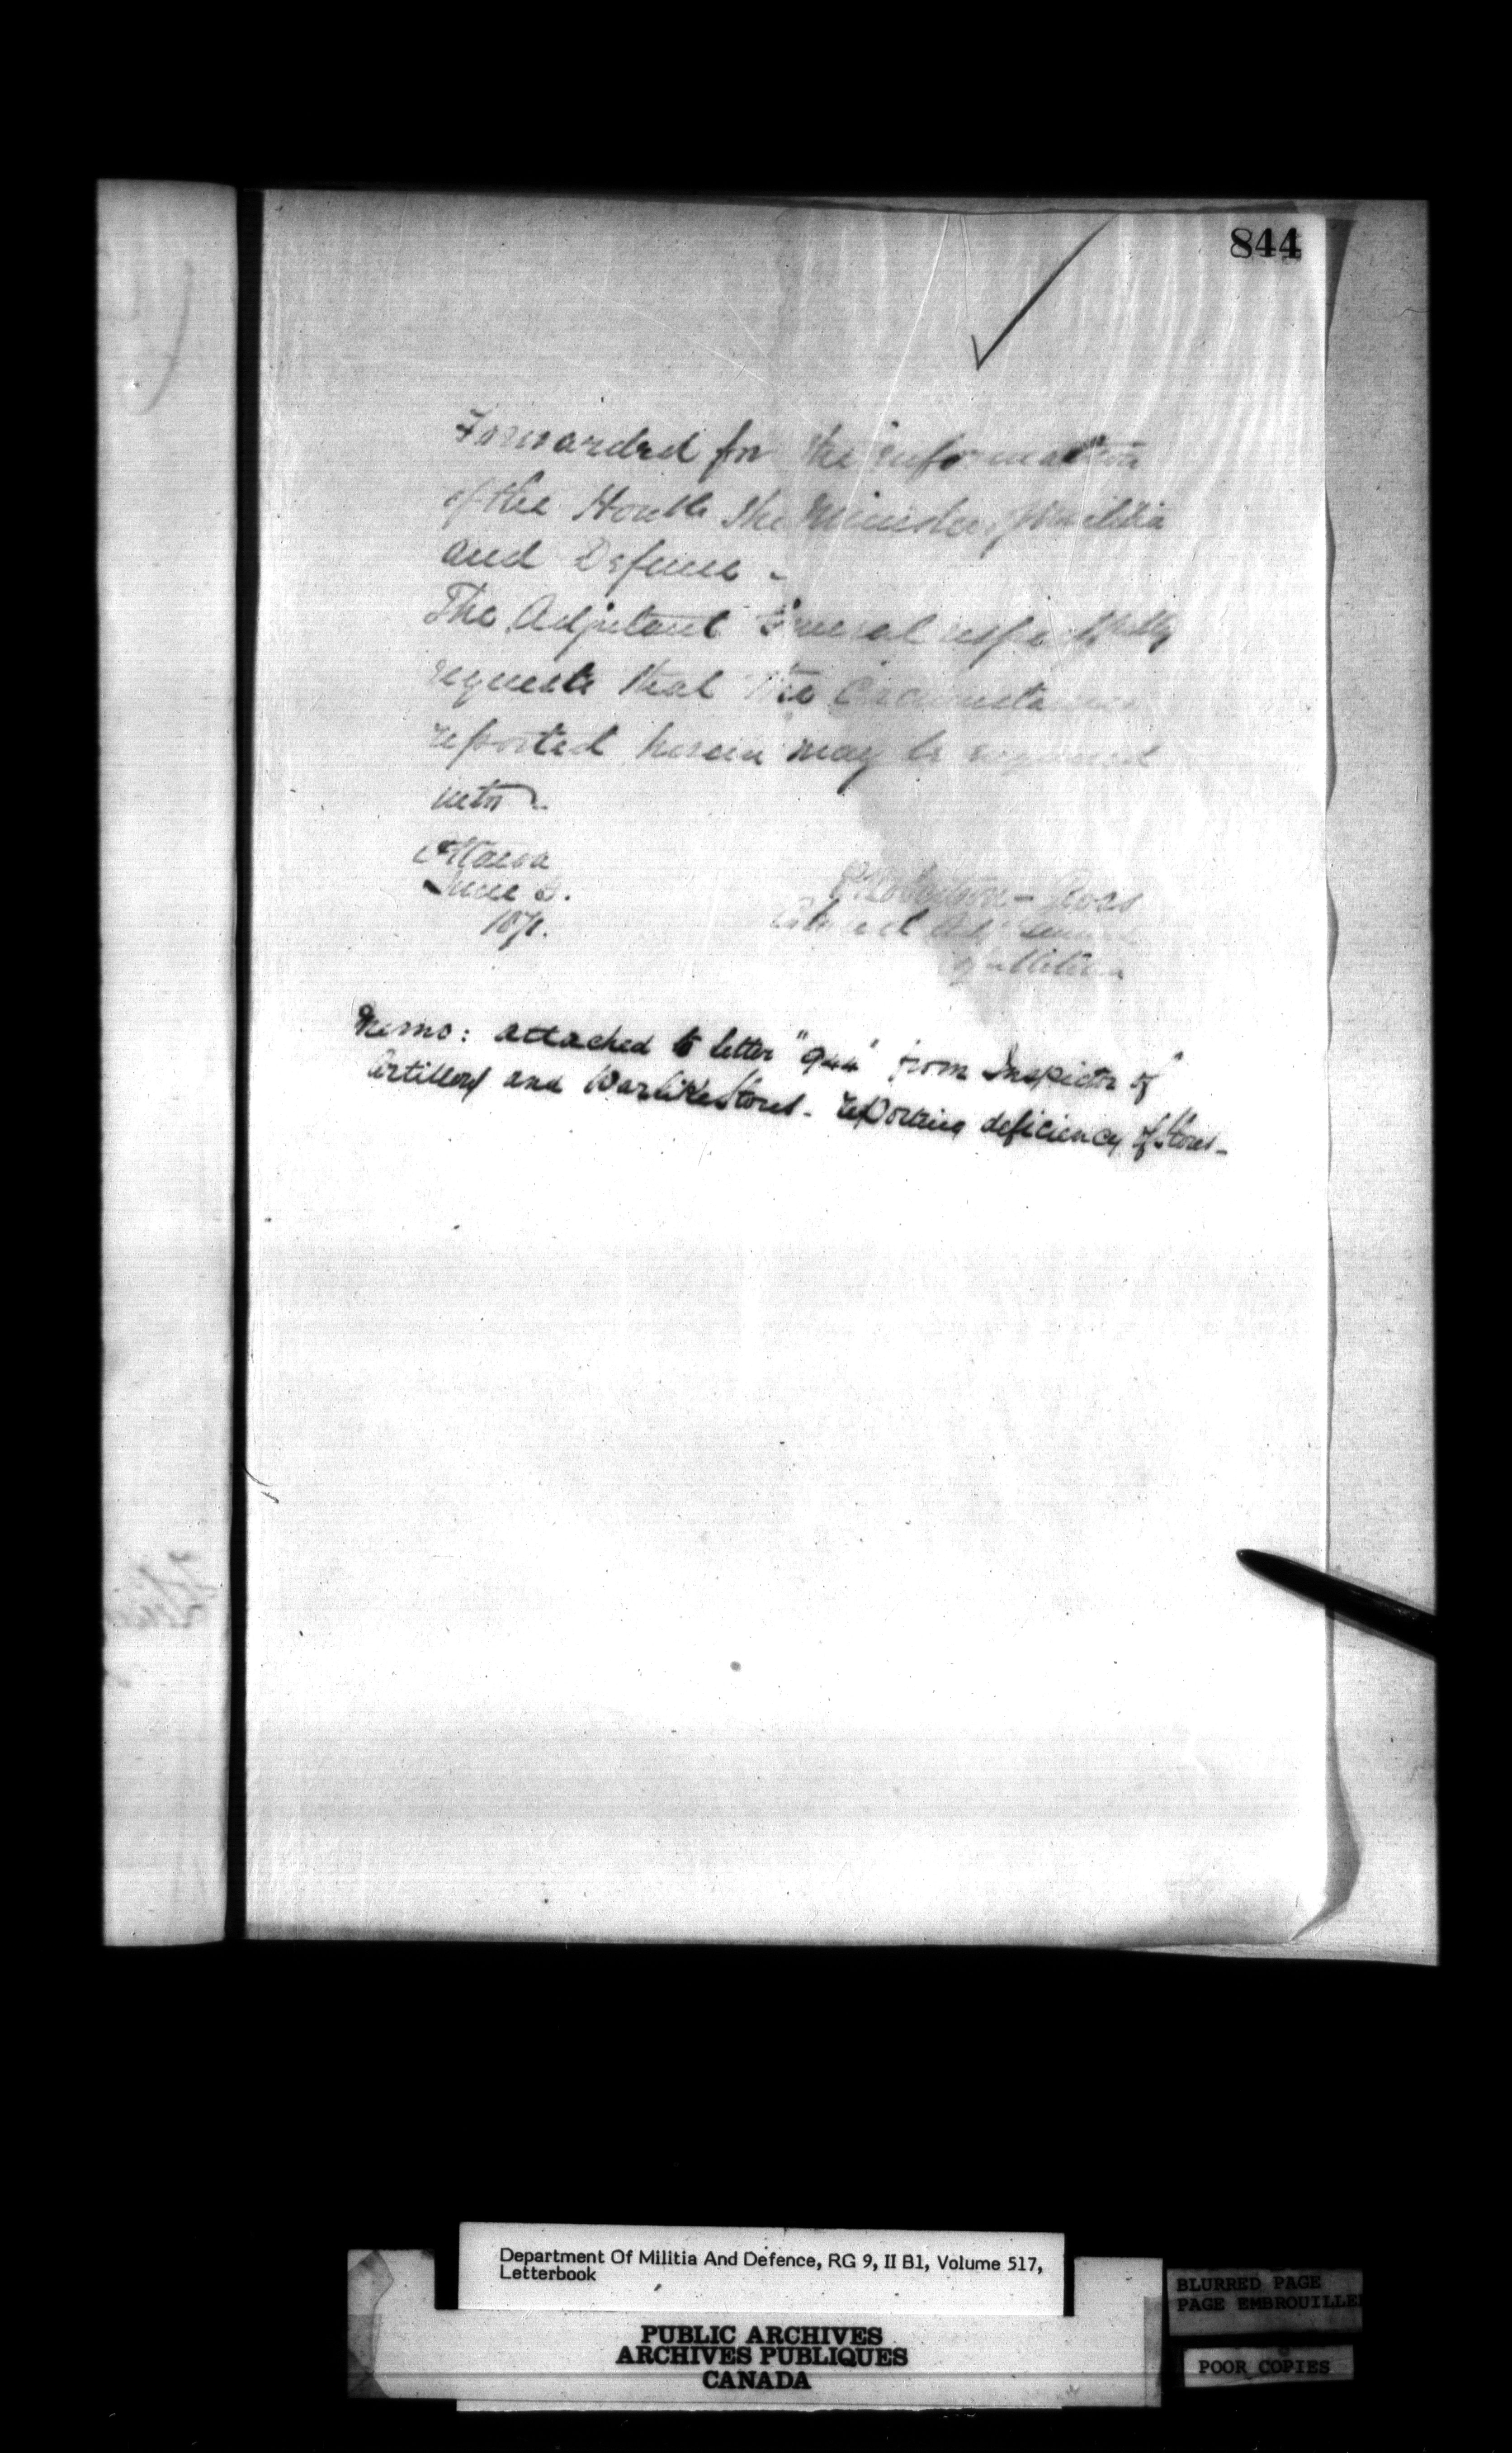 844
Forwarded for the information
of the Honble the Minister of Militia
and Defence -
The Adjutant General respectfully
requests that the Circumstances
reported herein may be enquired
into -
Ottawa
June
1871.
P Robertson-Ross
Colonel Adjt General
of Militia
Memo: attached to letter "944" from Inspector of
Artillery and Warlike Stores - reporting deficiency of Stores -
Department Of Militia And Defence, RG 9, II B1, Volume 517,
Letterbook
PUBLIC ARCHIVES
ARCHIVES PUBLIQUES
CANADA
BLURRED PAGE
PAGE EMBROUILLEE
POOR COPIES